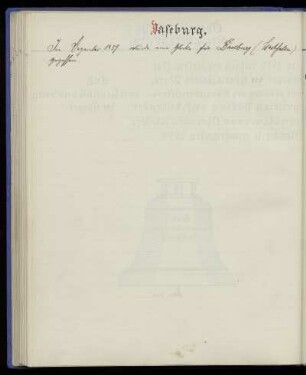 Daseburg.
Im Dezember 1927 wurde eine Glocke für Daseburg (Westfalen)
gegossen.